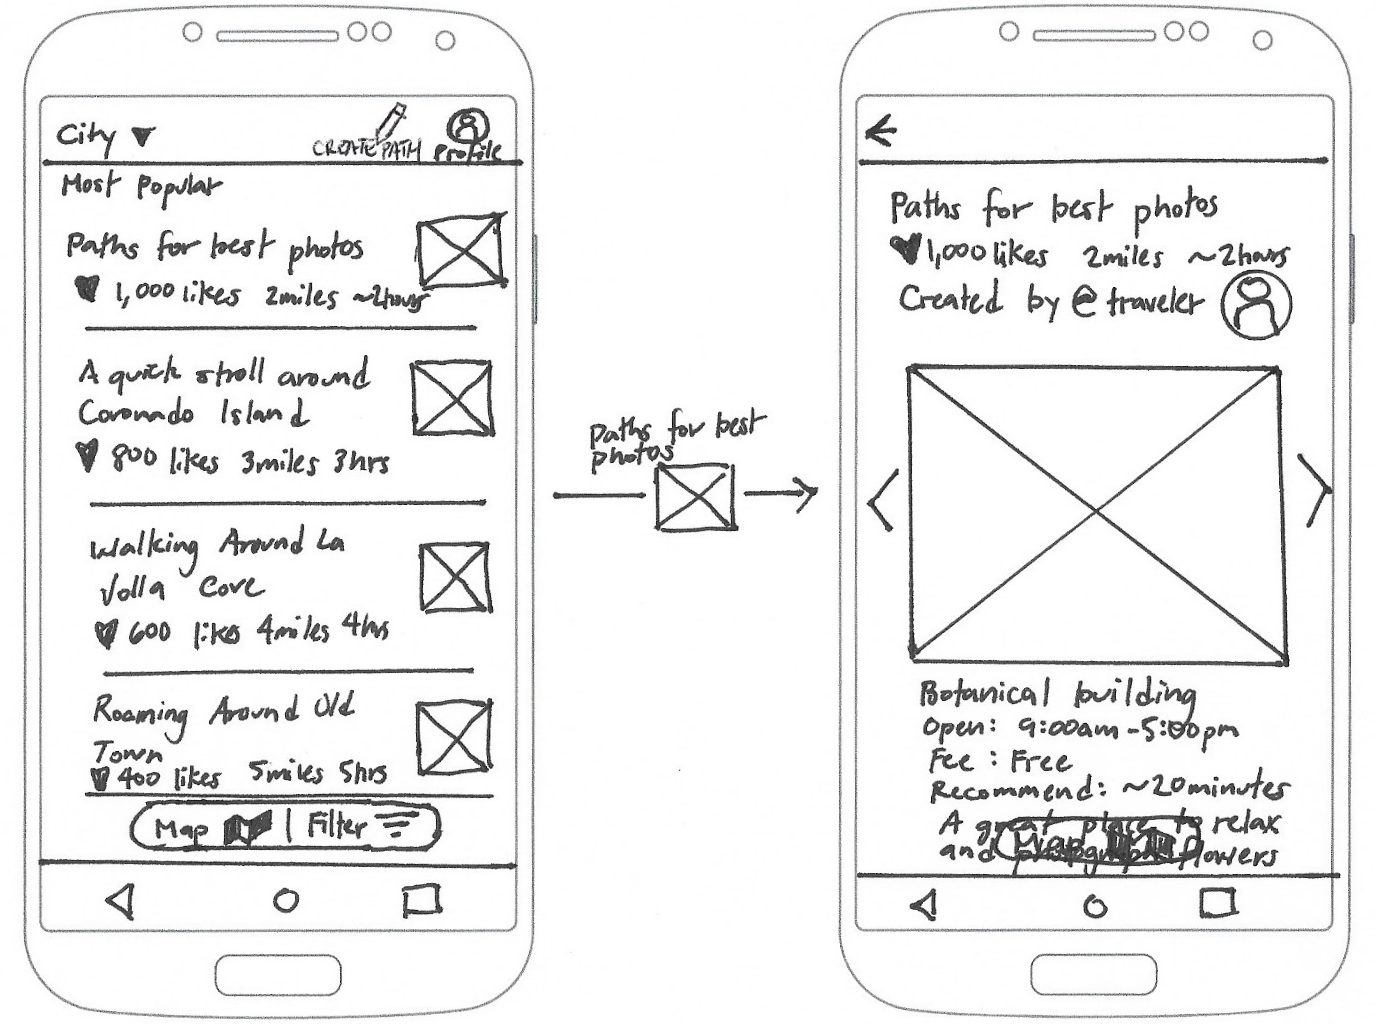 City
CREATE PATH
Profile
Most Popular
Paths for best photos
1,000 likes 2miles ~2hours
A quick stroll around
Coronado Island
800 likes 3miles 3hrs
Walking Around La
Jolla Cove
600 likes 4miles 4hrs
Roaming Around Old
Town
400 likes 5miles 5hrs
Map | Filter
Paths for best
photos
Paths for best photos
1,000 likes 2miles ~2hours
Created by @traveler
Botanical building
Open: 9:00am-5:00pm
Fee: Free
Recommend: ~20minutes
A great place to relax
and photograph flowers
Map